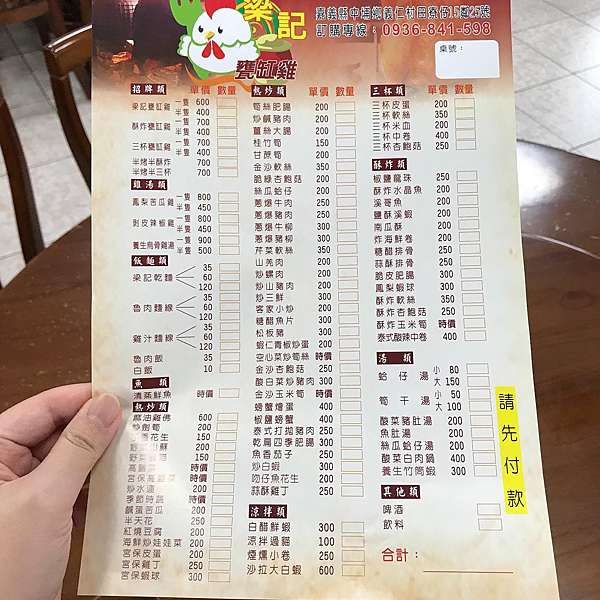 梁記
甕缸雞
嘉義縣中埔鄉義仁村
訂購專線：0936-841-598
桌號：
招牌類 單價 數量
梁記甕缸雞 一隻 600
半隻 400
酥炸甕缸雞 一隻 700
半隻 400
三杯甕缸雞 一隻 700
半隻 400
半烤半酥炸 700
半烤半三杯 700
雞湯類
鳳梨苦瓜雞 一隻 800
半隻 450
剝皮辣椒雞 一隻 800
半隻 450
養生烏骨雞湯 一隻 900
半隻 500
飯麵類
梁記乾麵 35
60
120
魯肉麵線 35
60
120
雞汁麵線 35
60
120
魯肉飯 35
白飯 10
魚類
清蒸鮮魚 時價
熱炒類
麻油雞佛 600
炒劍筍 200
花生 150
200
200
時價
宮保 時價
炒水蓮 200
季節時蔬 時價
鹹蛋苦瓜 200
半天花 250
紅燒豆腐 200
海鮮炒娃娃菜 200
宮保皮蛋 200
宮保雞丁 250
宮保蝦球 300
熱炒類 單價 數量
筍絲肥腸 200
炒鹹豬肉 200
薑絲大腸 200
桂竹筍 150
甘蔗筍 200
金沙軟絲 350
脆綠杏鮑菇 250
絲瓜蛤仔 200
蔥爆牛肉 250
蔥爆豬肉 250
蔥爆牛柳 300
芹菜軟絲 350
山羌肉 300
炒螺肉 200
炒山豬肉 200
炒三鮮 300
客家小炒 200
糖醋魚片 300
松板豬 300
蝦仁青椒炒蛋 200
空心菜炒筍絲 時價
金沙杏鮑菇 250
酸白菜炒豬肉 300
金沙玉米筍 時價
螃蟹燴蛋 400
椒鹽螃蟹 400
泰式打拋豬肉 250
乾扁四季肥腸 300
魚香茄子 250
炒白蝦 300
吻仔魚花生 200
蒜酥雞丁 250
涼拌類
白醋鮮蝦 300
涼拌過貓 100
煙燻小卷 250
沙拉大白蝦 600
三杯類 單價 數量
三杯皮蛋 200
三杯軟絲 350
三杯米血 200
三杯中卷 400
三杯杏鮑菇 250
酥炸類
椒鹽龍珠 250
酥炸水晶魚 200
溪哥魚 200
鹽酥溪蝦 200
南瓜酥 200
炸海鮮卷 200
糖醋排骨 250
蒜酥排骨 250
脆皮肥腸 300
鳳梨蝦球 300
酥炸軟絲 350
酥炸杏鮑菇 250
酥炸玉米筍 時價
泰式酸辣中卷 400
湯類
蛤仔湯 小 80
大 150
筍干湯 小 50
大 100
酸菜豬肚湯 200
魚肚湯 200
絲瓜蛤仔湯 200
酸菜白肉鍋 400
養生竹筒蝦 300
其他類
啤酒
飲料
合計：
請先付款